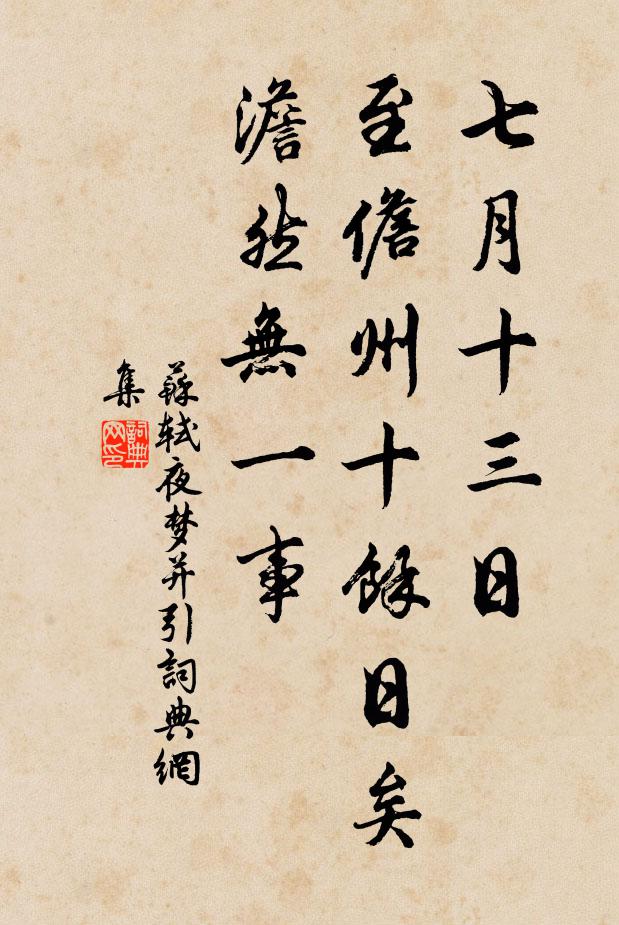 七月十三日
至儋州十餘日矣
澹然無一事
蘇軾夜梦并引詞典網
集
詞典网印